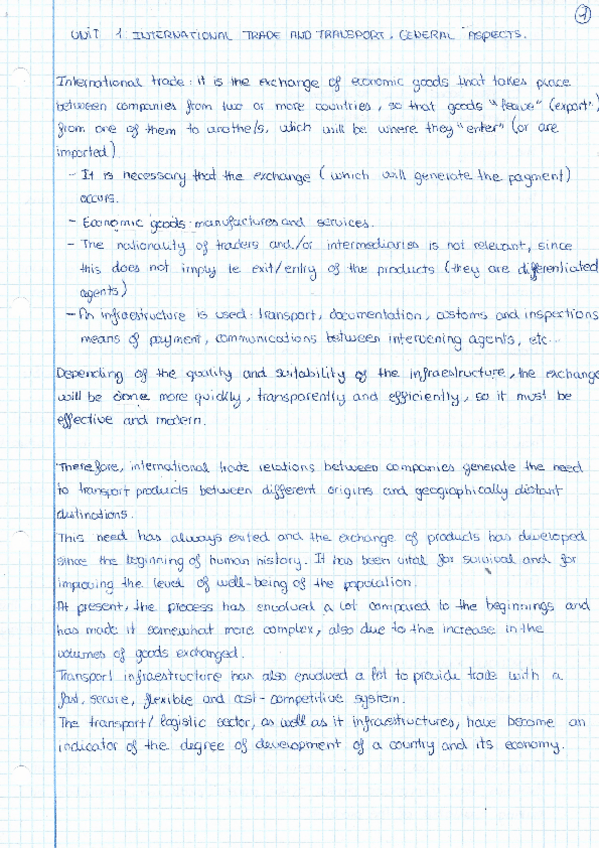 1
UNIT 1 INTERNATIONAL TRADE AND TRANSPORT. GENERAL ASPECTS.
International trade: it is the exchange of economic goods that takes place
between companies from two or more countries, so that goods "leave" (export)
from one of them to another/s, which will be where they "enter" (or are
imported)
- It is necessary that the exchange (which will generate the payment)
occurs.
- Economic goods: manufactures and services.
- The nationality of traders and/or intermediaries is not relevant, since
this does not imply le exit/entry of the products (they are differentiated
agents)
- An infraestructure is used: transport, documentation, customs and inspections
means of payment, communications between intervening agents, etc...
Depending of the quality and suitability of the infraestructure, the exchange
will be done more quickly, transparently and efficiently, so it must be
effective and modern.
Therefore, international trade relations between companies generate the need
to transport products between different origins and geographically distant
destinations.
This need has always exited and the exchange of products has developed
since the beginning of human history. It has been vital for survival and for
improving the level of well-being of the population.
At present, the process has envolved a lot compared to the beginnings and
has made it somewhat more complex, also due to the increase in the
volumes of goods exchanged.
Transport infraestructure has also envolved a lot to provide trade with a
fast, secure, flexible and cost-competitive system.
The transport/logistic sector, as well as it infraestructures, have become an
indicator of the degree of development of a country and its economy.